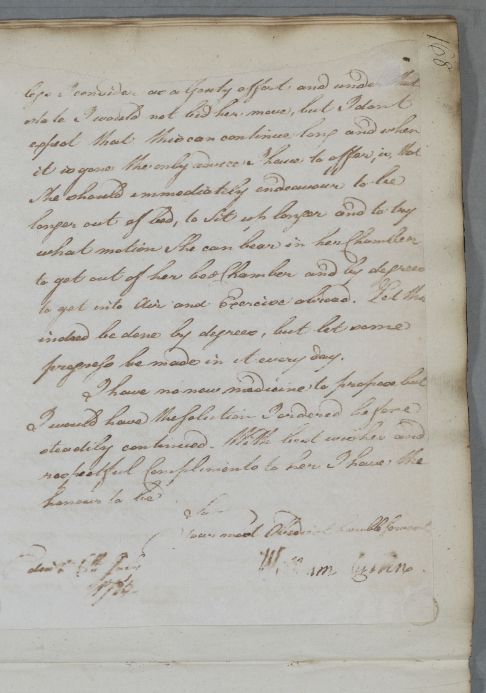 168
legs I consider as a Gouty effort and under that
state I would not bid her move, but I dont
expect that this can continue long and when
it is gone the only advice I have to offer, is, that
She should immediately endeavour to be
longer out of bed, to sit up longer and to try
what motion She can bear in her Chamber
to get out of her bed Chamber and by degrees
to get into Air and Exercise abroad. Let this
indeed be done by degrees, but let some
progress be made in it every day.
I have no new medicine to propose but
I would have the Solution I ordered before
steadily continued. With best wishes and
respectful Compliments to her I have the
honour to be
Sir
Your most Obedient humble servant
William Cullen
Edinr. 6th